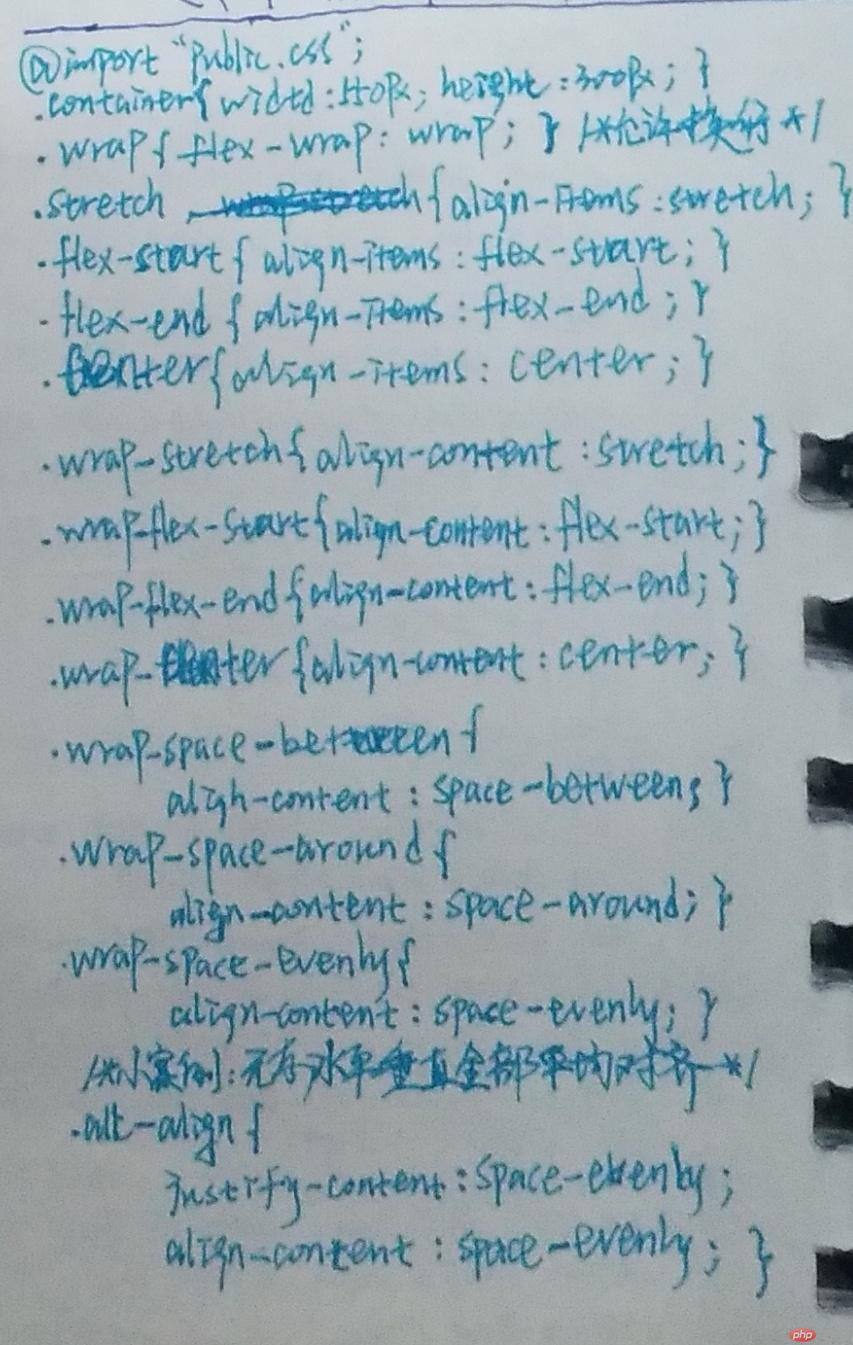 @import "public.css";
.container{ widtd:550px; height:300px; }
.wrap{ flex-wrap: wrap; } /*允许换行*/
.stretch {align-items:stretch; }
.flex-start{ align-items: flex-start; }
.flex-end {align-items:flex-end; }
.center{align-items: center; }
.wrap-stretch{align-content:stretch;}
.wrap-flex-start{align-content:flex-start;}
.wrap-flex-end{align-content:flex-end;}
.wrap-center{align-content:center;}
.wrap-space-between{
align-content: space-between; }
.wrap-space-around{
align-content: space-around; }
.wrap-space-evenly{
align-content: space-evenly; }
/*小案例:元素水平垂直全部平均对齐*/
.alt-align{
justify-content:space-evenly;
align-content: space-evenly; }
php